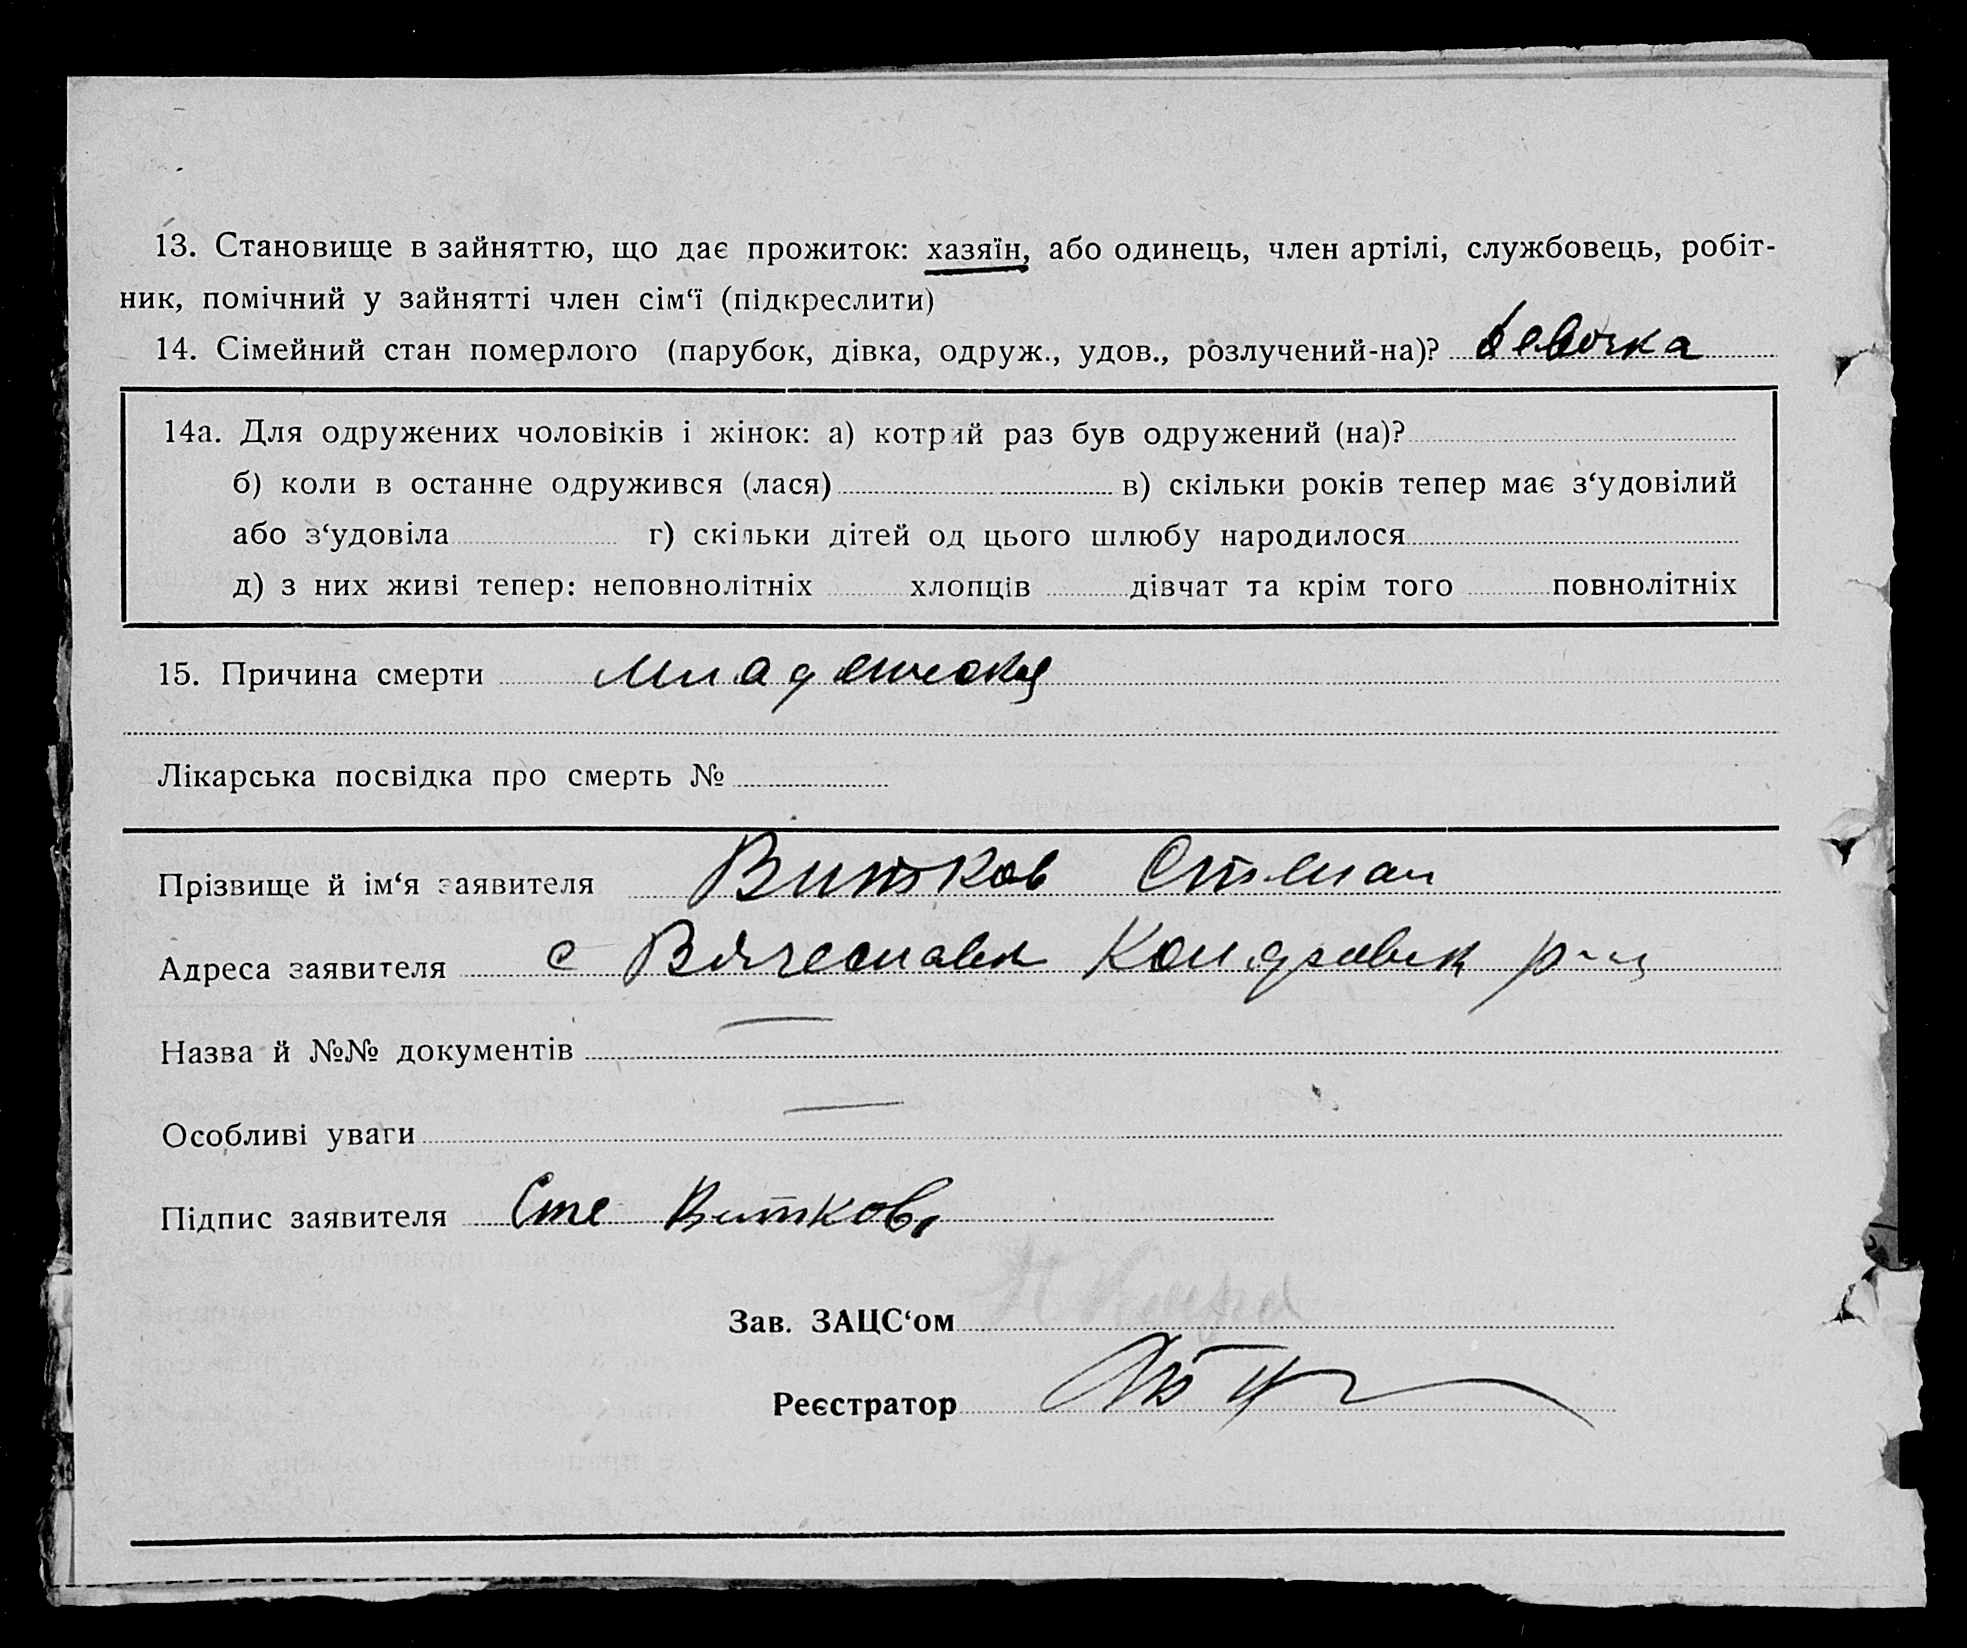 13. Становище в зайняттю, що дає прожиток: хазяїн, або одинець, член артілі, службовець, робіт-
ник, помічний у зайнятті член сім‘ї (підкреслити)
14. Сімейний стан померлого (парубок, дівка, одруж., удов., розлучений-на)? девочка
14а. Для одружених чоловіків і жінок: а) котрий раз був одружений (на)?
б) коли в останнє одружився (лася) в) скільки років тепер має з‘удовілий
або з‘удовіла г) скільки дітей од цього шлюбу народилося
д) з них живі тепер: неповнолітніх хлопців дівчат та крім того повнолітніх
15. Причина смерти
Лікарська посвідка про смерть №
Прізвище й ім‘я заявителя Витков Степан
Адреса заявителя с Вячеславк р-ц
Назва й №№ документів —
Особливі уваги —
Підпис заявителя Сте Витков
Зав. ЗАЦС‘ом
Реєстратор